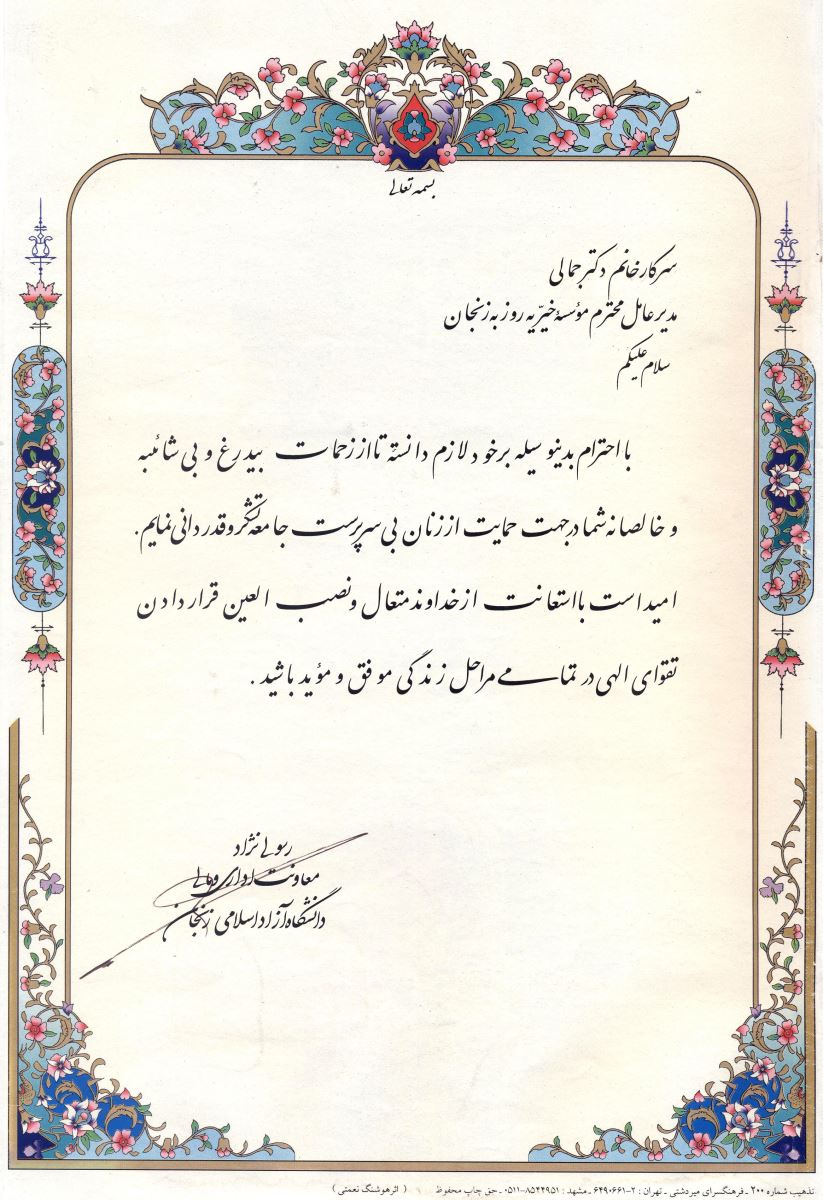 بسمه تعالی
سرکار خانم دکتر جمالی
مدیر عامل محترم مؤسسهٔ خیّریه روزبه زنجان
سلام علیکم
با احترام بدینوسیله بر خود لازم دانسته تا از زحمات بیدرغ و بی شائبه
و خالصانه شما در جهت حمایت از زنان بی سرپرست جامعه تشکر و قدردانی نمایم.
امید است با استعانت از خداوند متعال و نصب العین قرار دادن
تقوای الهی در تمامی مراحل زندگی موفق و مؤید باشید.
رسولی نژاد
معاونت اداری و مالی
دانشگاه آزاد اسلامی زنجان
تذهیب شماره ۲۰۰ ـ فرهنگسرای میردشتی ـ تهران: ۲-۶۴۹۰۶۶۱ ـ مشهد: ۸۵۴۴۹۵۱-۰۵۱۱ ـ حق چاپ محفوظ (اثر هوشنگ نعمتی)